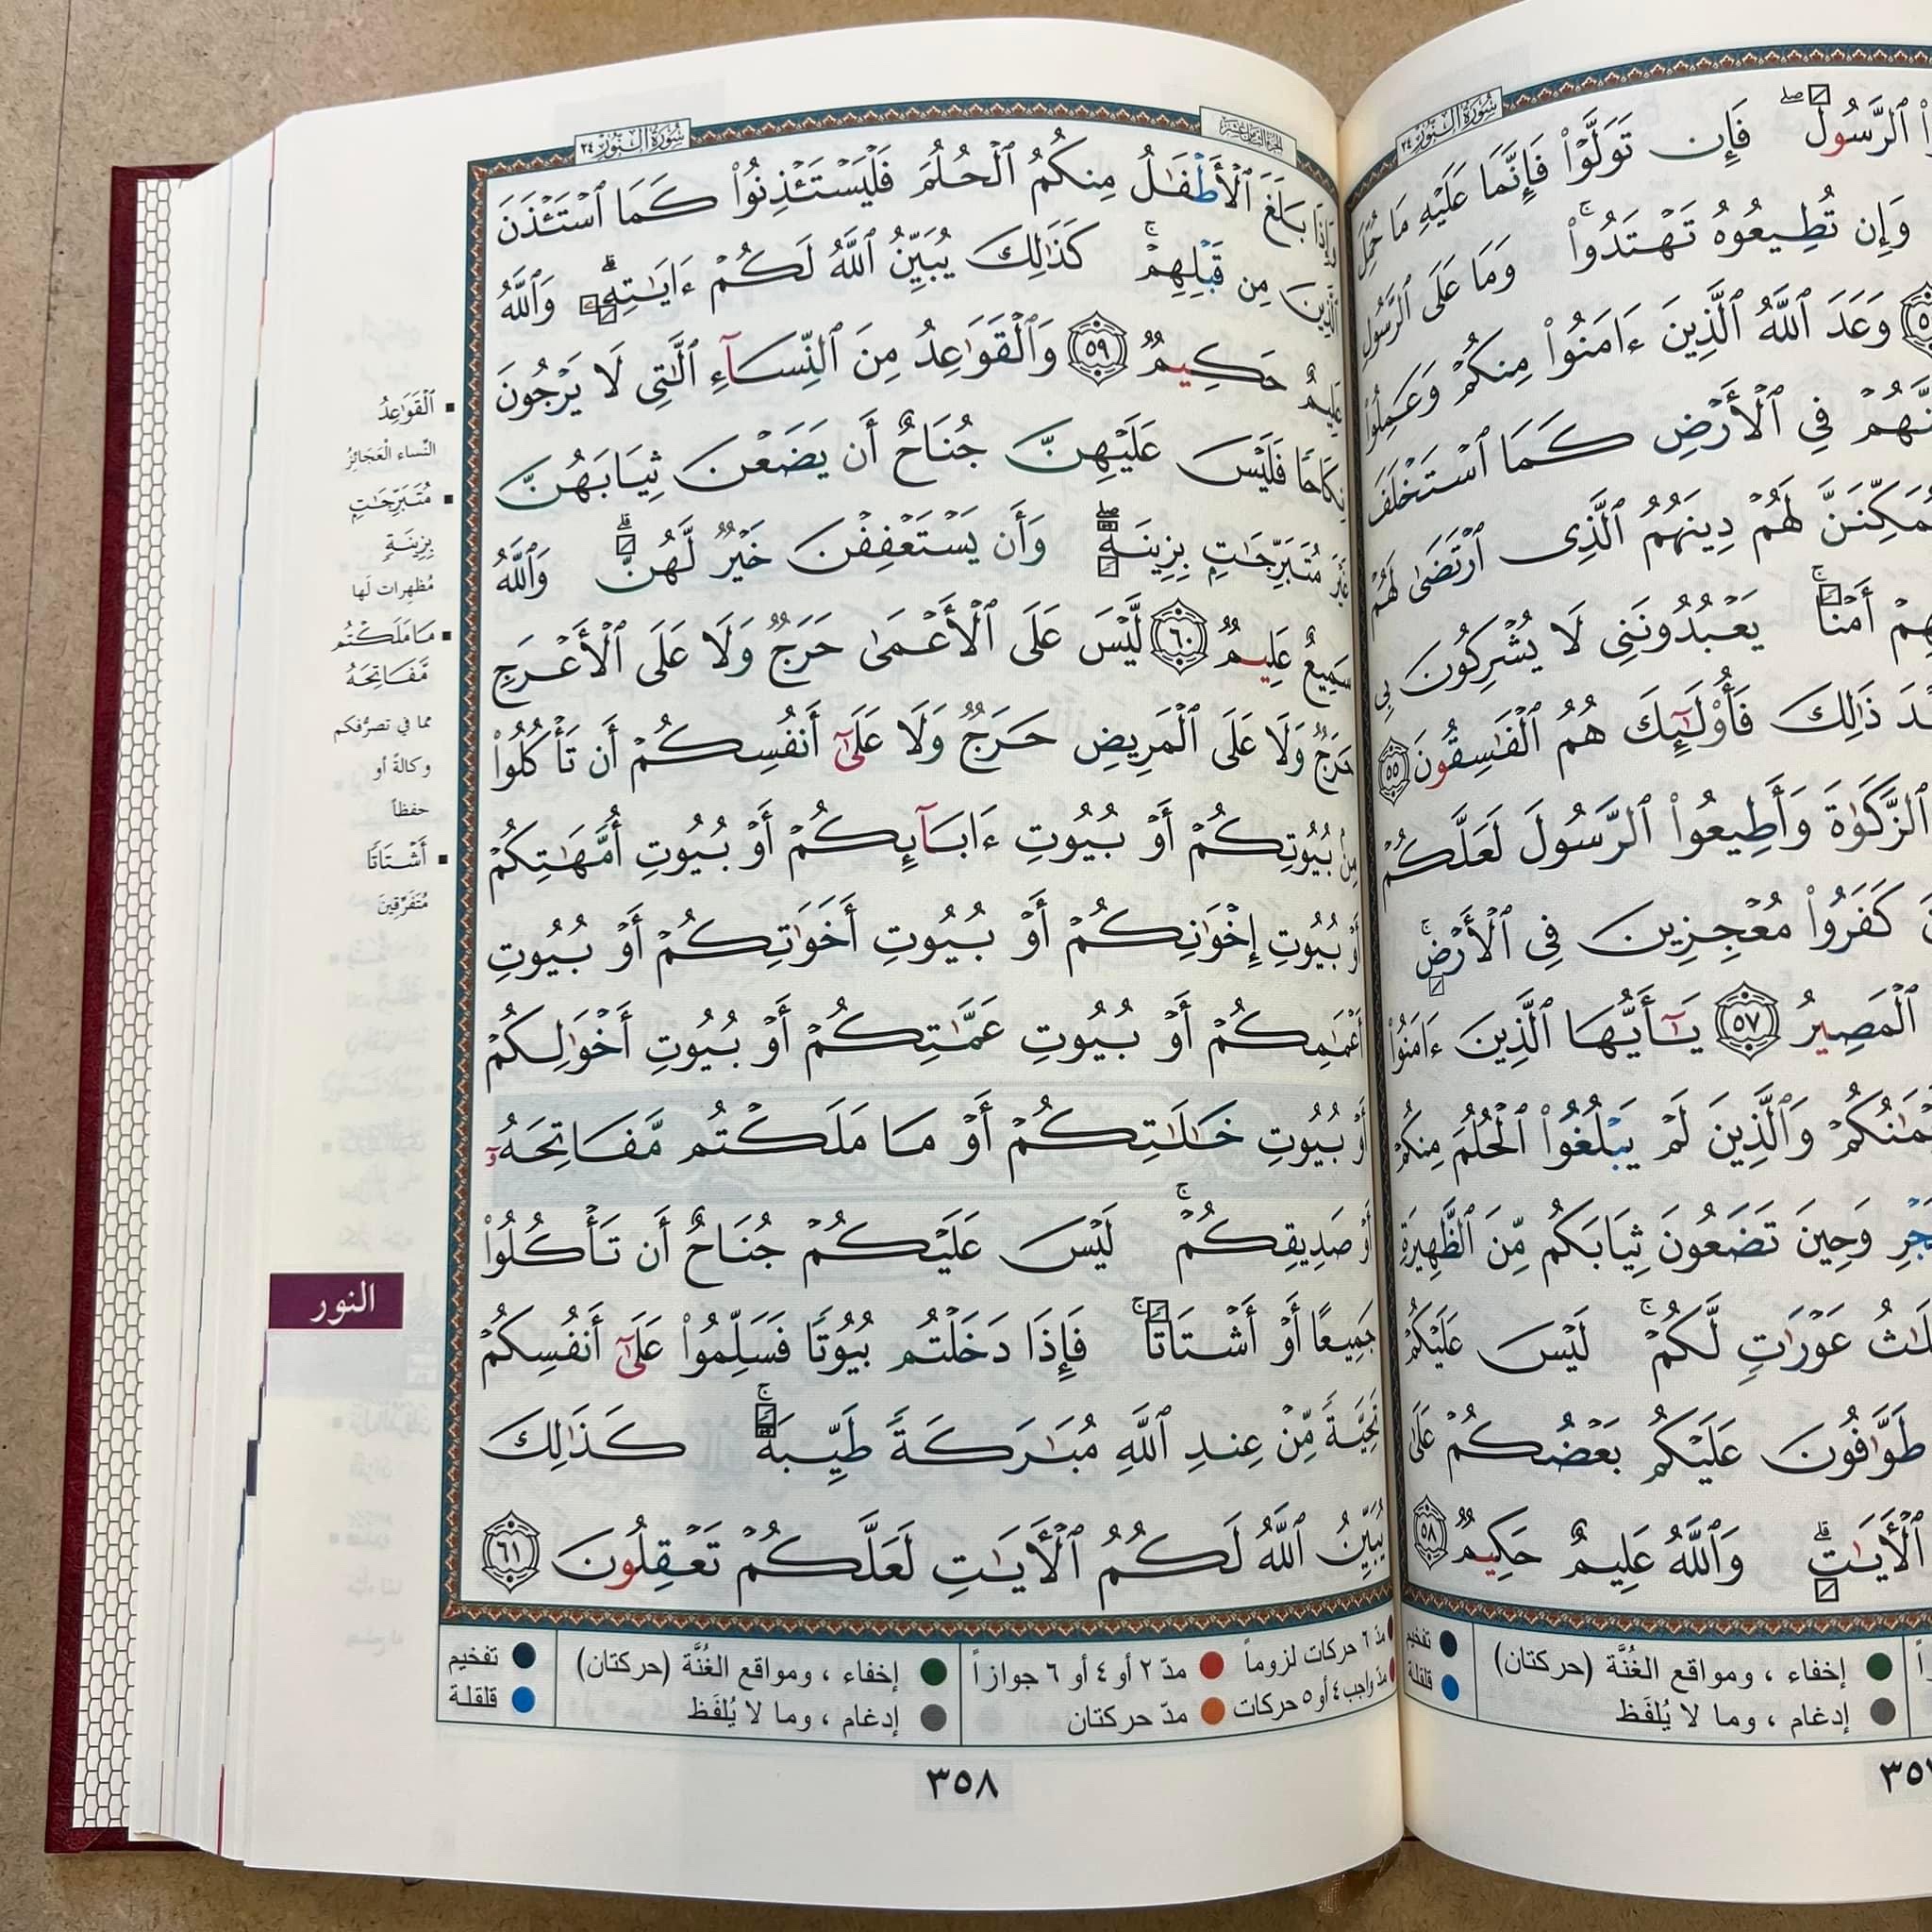 سُورَةُ النُّورِ ٢٤
فَإِن تَوَلَّوْا۟ فَإِنَّمَا عَلَيْهِ مَا حُمِّلَ
وَإِن تُطِيعُوهُ تَهْتَدُوا۟ ۚ وَمَا عَلَى ٱلرَّسُولِ
وَعَدَ ٱللَّهُ ٱلَّذِينَ ءَامَنُوا۟ مِنكُمْ وَعَمِلُوا۟
فِى ٱلْأَرْضِ كَمَا ٱسْتَخْلَفَ
لَهُمْ دِينَهُمُ ٱلَّذِى ٱرْتَضَىٰ لَهُمْ
أَمْنًا ۚ يَعْبُدُونَنِى لَا يُشْرِكُونَ بِى
ذَٰلِكَ فَأُو۟لَٰٓئِكَ هُمُ ٱلْفَٰسِقُونَ ٥٥
ٱلزَّكَوٰةَ وَأَطِيعُوا۟ ٱلرَّسُولَ لَعَلَّكُمْ
كَفَرُوا۟ مُعْجِزِينَ فِى ٱلْأَرْضِ ۚ
ٱلْمَصِيرُ ٥٧ يَٰٓأَيُّهَا ٱلَّذِينَ ءَامَنُوا۟
وَٱلَّذِينَ لَمْ يَبْلُغُوا۟ ٱلْحُلُمَ مِنكُمْ
وَحِينَ تَضَعُونَ ثِيَابَكُم مِّنَ ٱلظَّهِيرَةِ
عَوْرَٰتٍ لَّكُمْ ۚ لَيْسَ عَلَيْكُمْ
طَوَّٰفُونَ عَلَيْكُم بَعْضُكُمْ عَلَىٰ
ٱلْأَيَٰتِ ۗ وَٱللَّهُ عَلِيمٌ حَكِيمٌ ٥٨
إخفاء ، ومواقع الغُنَّة (حركتان)
تفخيم
إدغام ، وما لا يُلفَظ
قلقلة
الجزء الثامن عشر
سُورَةُ النُّورِ ٢٤
وَإِذَا بَلَغَ ٱلْأَطْفَٰلُ مِنكُمُ ٱلْحُلُمَ فَلْيَسْتَـْٔذِنُوا۟ كَمَا ٱسْتَـْٔذَنَ
ٱلَّذِينَ مِن قَبْلِهِمْ ۚ كَذَٰلِكَ يُبَيِّنُ ٱللَّهُ لَكُمْ ءَايَٰتِهِۦ ۗ وَٱللَّهُ
عَلِيمٌ حَكِيمٌ ٥٩ وَٱلْقَوَٰعِدُ مِنَ ٱلنِّسَآءِ ٱلَّٰتِى لَا يَرْجُونَ
نِكَاحًا فَلَيْسَ عَلَيْهِنَّ جُنَاحٌ أَن يَضَعْنَ ثِيَابَهُنَّ
غَيْرَ مُتَبَرِّجَٰتٍۭ بِزِينَةٍ ۖ وَأَن يَسْتَعْفِفْنَ خَيْرٌ لَّهُنَّ ۗ وَٱللَّهُ
سَمِيعٌ عَلِيمٌ ٦٠ لَّيْسَ عَلَى ٱلْأَعْمَىٰ حَرَجٌ وَلَا عَلَى ٱلْأَعْرَجِ
حَرَجٌ وَلَا عَلَى ٱلْمَرِيضِ حَرَجٌ وَلَا عَلَىٰٓ أَنفُسِكُمْ أَن تَأْكُلُوا۟
مِنۢ بُيُوتِكُمْ أَوْ بُيُوتِ ءَابَآئِكُمْ أَوْ بُيُوتِ أُمَّهَٰتِكُمْ
أَوْ بُيُوتِ إِخْوَٰنِكُمْ أَوْ بُيُوتِ أَخَوَٰتِكُمْ أَوْ بُيُوتِ
أَعْمَٰمِكُمْ أَوْ بُيُوتِ عَمَّٰتِكُمْ أَوْ بُيُوتِ أَخْوَٰلِكُمْ
أَوْ بُيُوتِ خَٰلَٰتِكُمْ أَوْ مَا مَلَكْتُم مَّفَاتِحَهُۥٓ
أَوْ صَدِيقِكُمْ ۚ لَيْسَ عَلَيْكُمْ جُنَاحٌ أَن تَأْكُلُوا۟
جَمِيعًا أَوْ أَشْتَاتًا ۚ فَإِذَا دَخَلْتُم بُيُوتًا فَسَلِّمُوا۟ عَلَىٰٓ أَنفُسِكُمْ
تَحِيَّةً مِّنْ عِندِ ٱللَّهِ مُبَٰرَكَةً طَيِّبَةً ۚ كَذَٰلِكَ
يُبَيِّنُ ٱللَّهُ لَكُمُ ٱلْأَيَٰتِ لَعَلَّكُمْ تَعْقِلُونَ ٦١
ٱلْقَوَٰعِدُ
النِّساء الْعَجَائِزُ
مُتَبَرِّجَٰتٍ
بِزِينَةٍ
مُظهِرات لَها
مَا مَلَكْتُم
مَّفَاتِحَهُ
مما في تصرُّفكم
وكالةً أو
حفظاً
أَشْتَاتًا
مُتَفَرِّقِينَ
النور
مدّ ٦ حركات لزوماً
مدّ ٢ أو ٤ أو ٦ جوازاً
إخفاء ، ومواقع الغُنَّة (حركتان)
تفخيم
مدّ واجب ٤ أو ٥ حركات
مدّ حركتان
إدغام ، وما لا يُلفَظ
قلقلة
٣٥٨